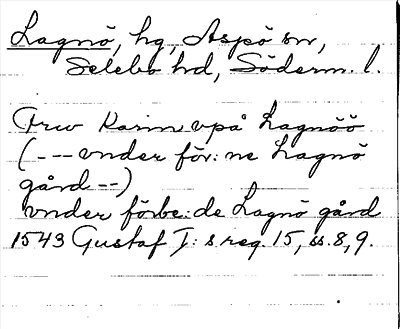 Lagnö, hg, Aspö sn,
Selebo hd, Söderm. l.
Frw Karin vpå Lagnöö
(--- vnder för: ne Lagnö
gård --)
vnder förbe: de Lagnö gård
1543 Gustaf I: s reg. 15, ss. 8, 9.